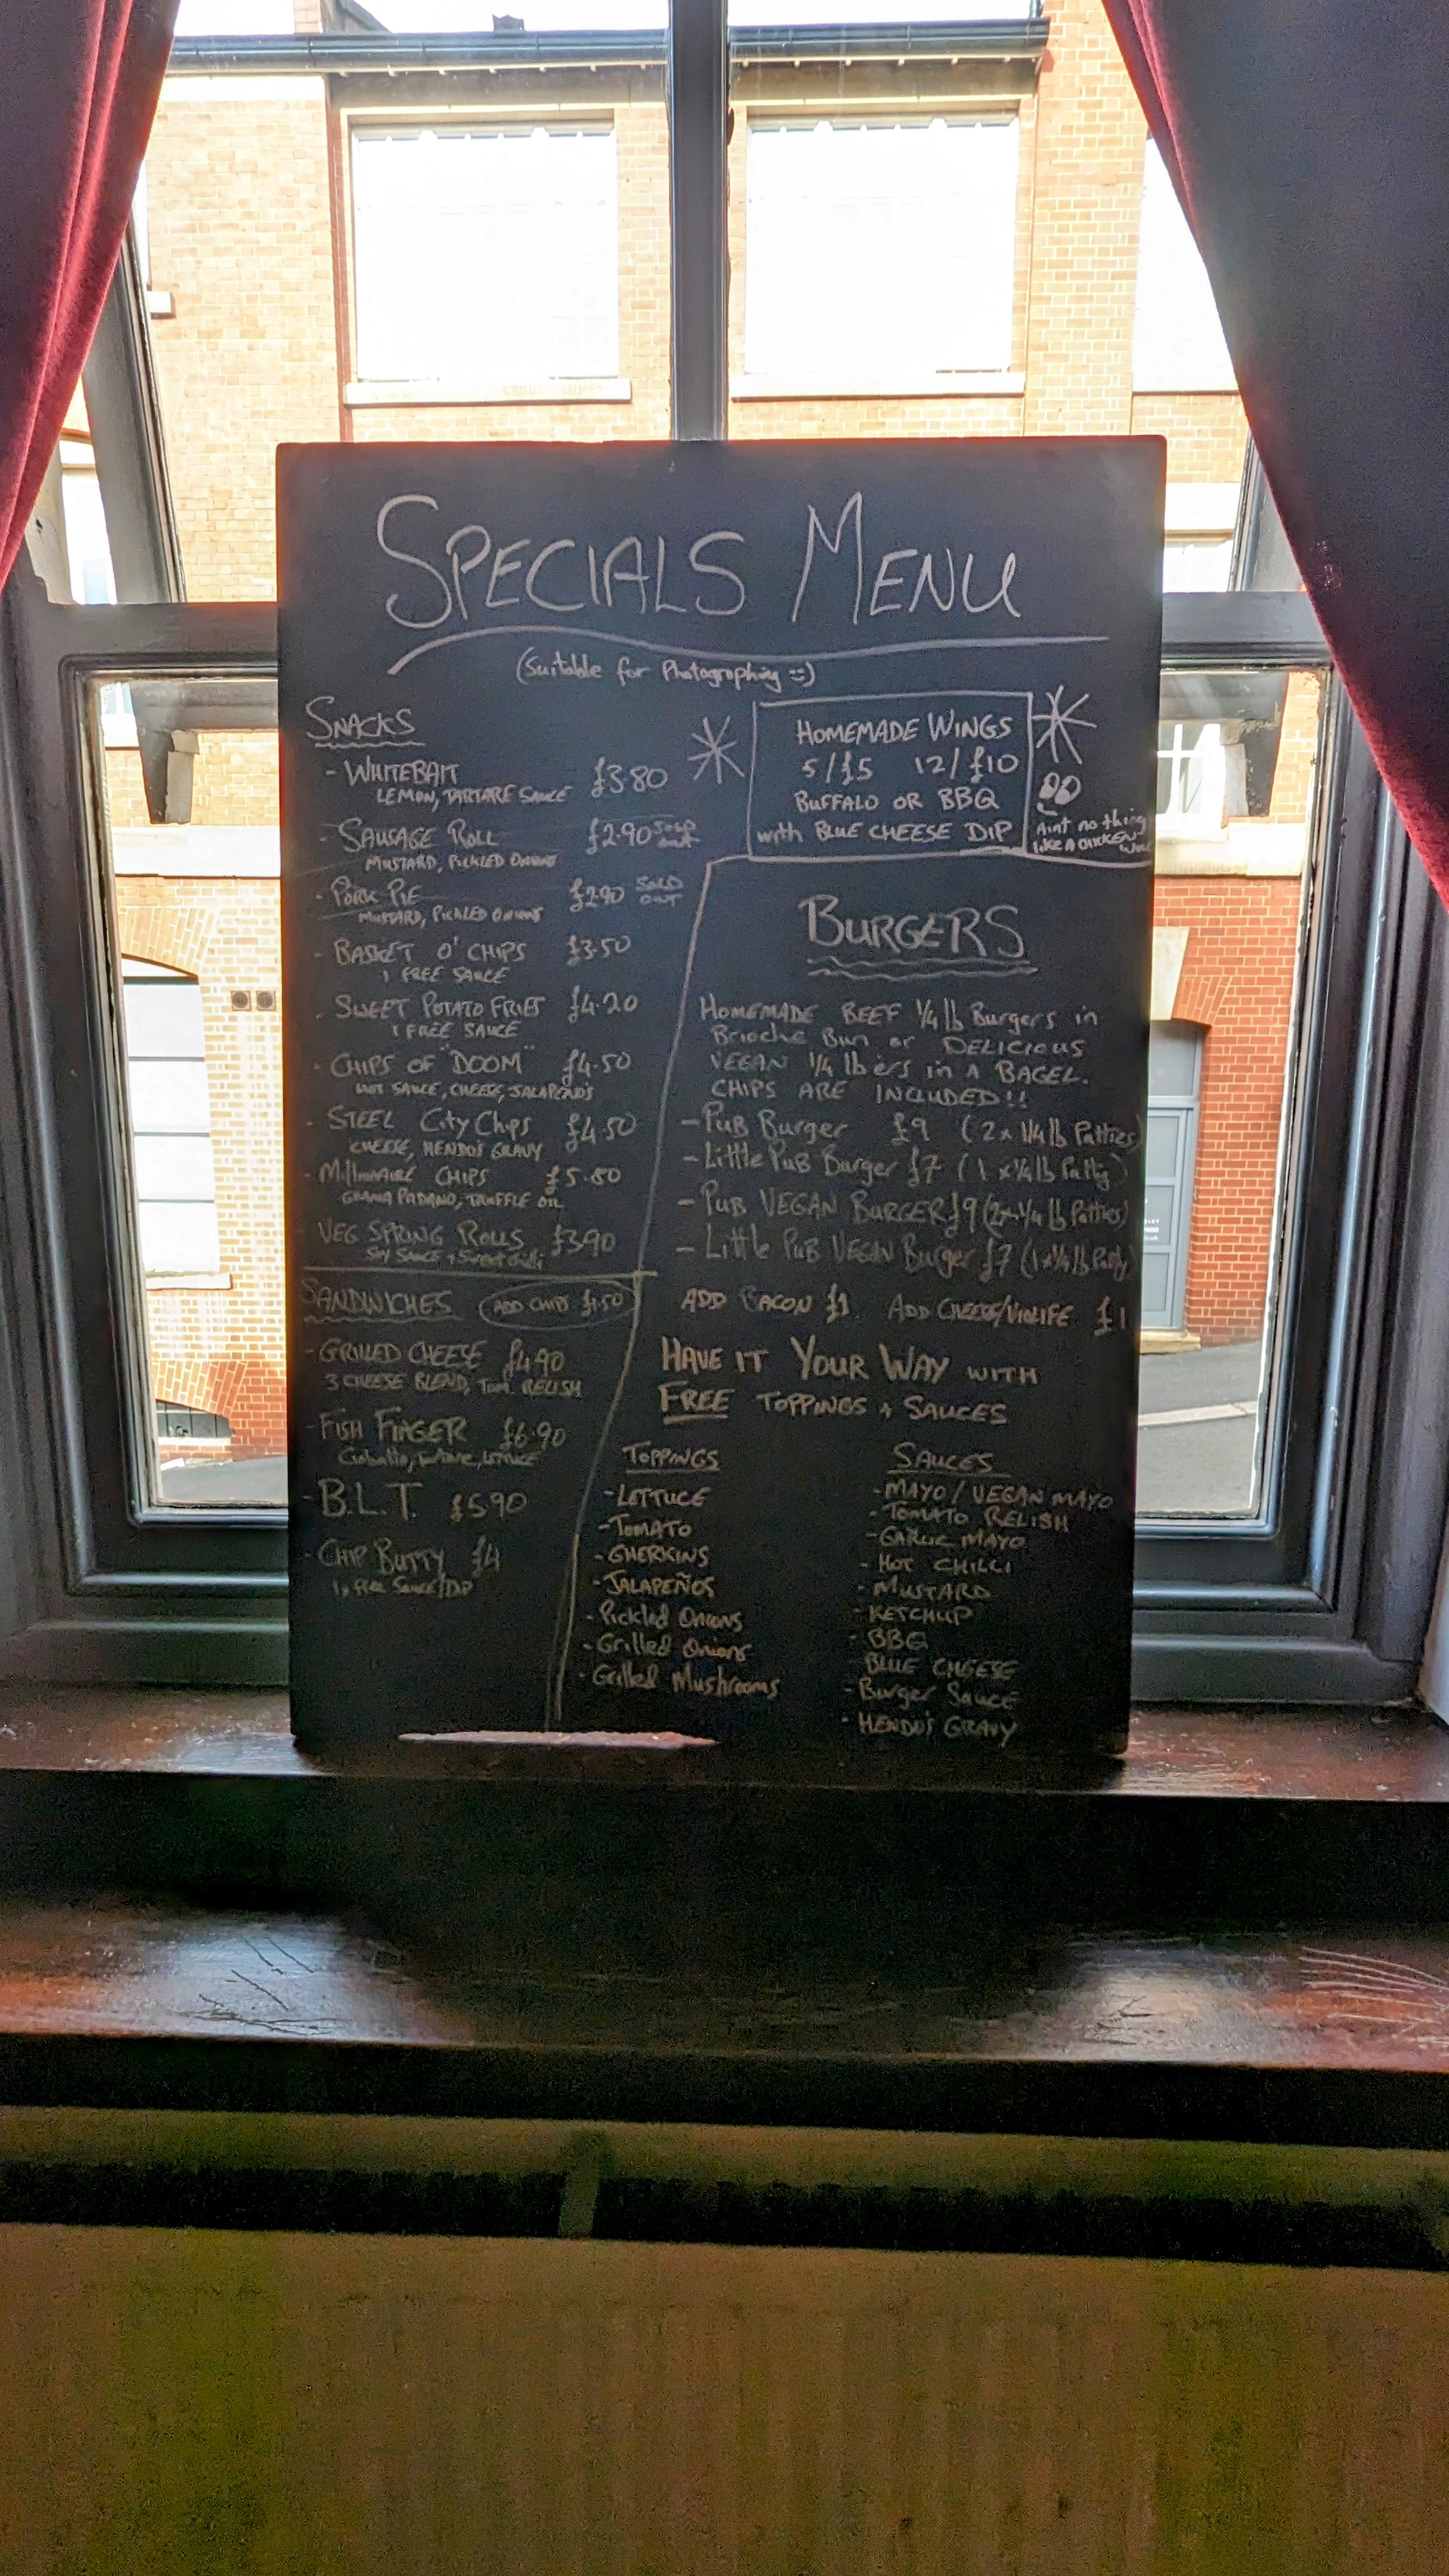 SPECIALS MENU
(Suitable for Photographing =))
SNACKS
- WHITEBAIT £3.80
LEMON, TARTARE SAUCE
- SAUSAGE ROLL £2.90 SOLD OUT
MUSTARD, PICKLED ONIONS
- PORK PIE £2.90 SOLD OUT
MUSTARD, PICKLED ONIONS
- BASKET O' CHIPS £3.50
1 FREE SAUCE
- SWEET POTATO FRIES £4.20
1 FREE SAUCE
- CHIPS OF "DOOM" £4.50
HOT SAUCE, CHEESE, JALAPENOS
- STEEL City Chips £4.50
CHEESE, HENDO'S GRAVY
- Millionaire CHIPS £5.80
GRANA PADANO, TRUFFLE OIL
VEG SPRING ROLLS £3.90
Soy SAUCE + Sweet chilli
SANDWICHES ADD CHIPS £1.50
- GRILLED CHEESE £4.90
3 CHEESE BLEND, TOM. RELISH
- FISH FINGER £6.90
Ciabatta, tartare, LETTUCE
- B.L.T. £5.90
- CHIP BUTTY £4
1x FREE SAUCE/DIP
HOMEMADE WINGS
5/£5 12/£10
BUFFALO OR BBQ
with BLUE CHEESE DIP
Aint no thing
like A CHICKEN
WING
BURGERS
HOMEMADE BEEF 1/4 lb Burgers in
Brioche Bun or DELICIOUS
VEGAN 1/4 lbers in A BAGEL.
CHIPS ARE INCLUDED!!
- PUB Burger £9 (2x 1/4 lb Patties)
- Little PUB Burger £7 (1x 1/4 lb Patty)
- PUB VEGAN BURGER £9 (2x 1/4 lb Patties)
- Little PUB VEGAN Burger £7 (1x 1/4 lb Patty)
ADD BACON £1 ADD CHEESE/VIOLIFE £1
HAVE IT YOUR WAY WITH
FREE TOPPINGS + SAUCES
TOPPINGS
- LETTUCE
- TOMATO
- GHERKINS
- JALAPEÑOS
- Pickled Onions
- Grilled Onions
- Grilled Mushrooms
SAUCES
- MAYO / VEGAN MAYO
- TOMATO RELISH
- GARLIC MAYO
- HOT CHILLI
- MUSTARD
- KETCHUP
- BBQ
BLUE CHEESE
- Burger Sauce
- HENDO'S GRAVY